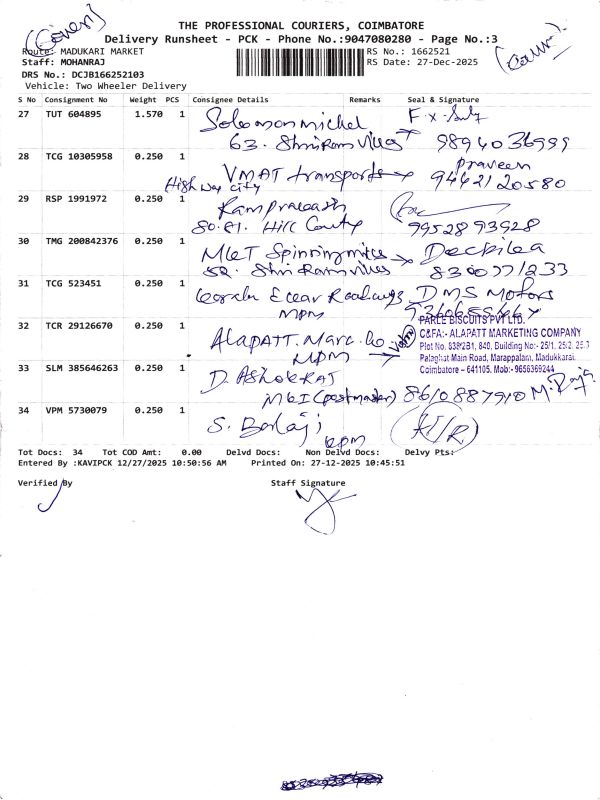 THE PROFESSIONAL COURIERS, COIMBATORE
Delivery Runsheet - PCK - Phone No.:9047080280 - Page No.:3
Route: MADUKARI MARKET
RS No.: 1662521
Staff: MOHANRAJ
RS Date: 27-Dec-2025
DRS No.: DCJB166252103
Vehicle: Two Wheeler Delivery
S No Consignment No Weight PCS Consignee Details Remarks Seal & Signature
27 TUT 604895 1.570 1 Solomon michel
63. Shriram villas 9894036999
28 TCG 10305958 0.250 1 VMAT transports Praveen
High way city 9442120580
29 RSP 1991972 0.250 1 Ramprakash
80.81. Hill County 9952893928
30 TMG 200842376 0.250 1 M&T Spinning mills
52. Shri Ram villas 8300771233
31 TCG 523451 0.250 1 Kerala Roadways DMS Motors
MPM
32 TCR 29126670 0.250 1 ALAPATT. Marc. Co
MPM
PARLE BISCUITS PVT LTD.
C&FA:- ALAPATT MARKETING COMPANY
Plot No. 838/2B1, 840, Building No:- 25/1, 25/2, 25/3
Palaghat Main Road, Marappalam, Madukkarai.
Coimbatore – 641105. Mob:- 9656369244
33 SLM 385646263 0.250 1 D. ASHOKRAJ
(postmaster) 8610887910 M. Raja
34 VPM 5730079 0.250 1 S. Balaji
Tot Docs: 34 Tot COD Amt: 0.00 Delvd Docs: Non Delvd Docs: Delvy Pts:
Entered By :KAVIPCK 12/27/2025 10:50:56 AM Printed On: 27-12-2025 10:45:51
Verified By Staff Signature